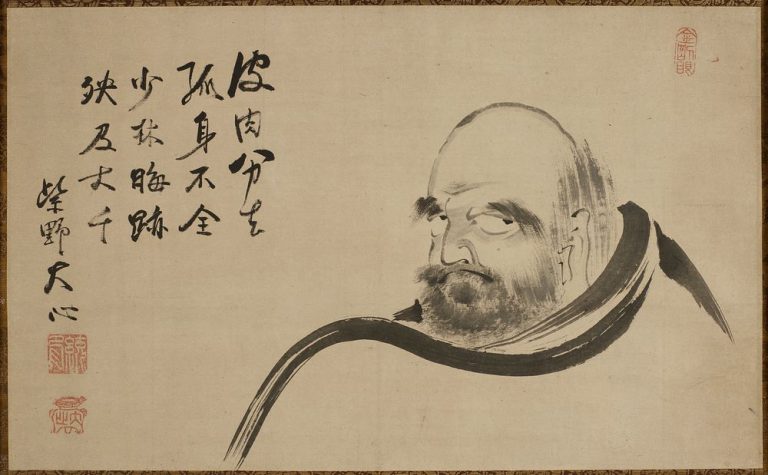 皮肉分去
孤身不全
少林晦跡
殃及大千
紫野大心